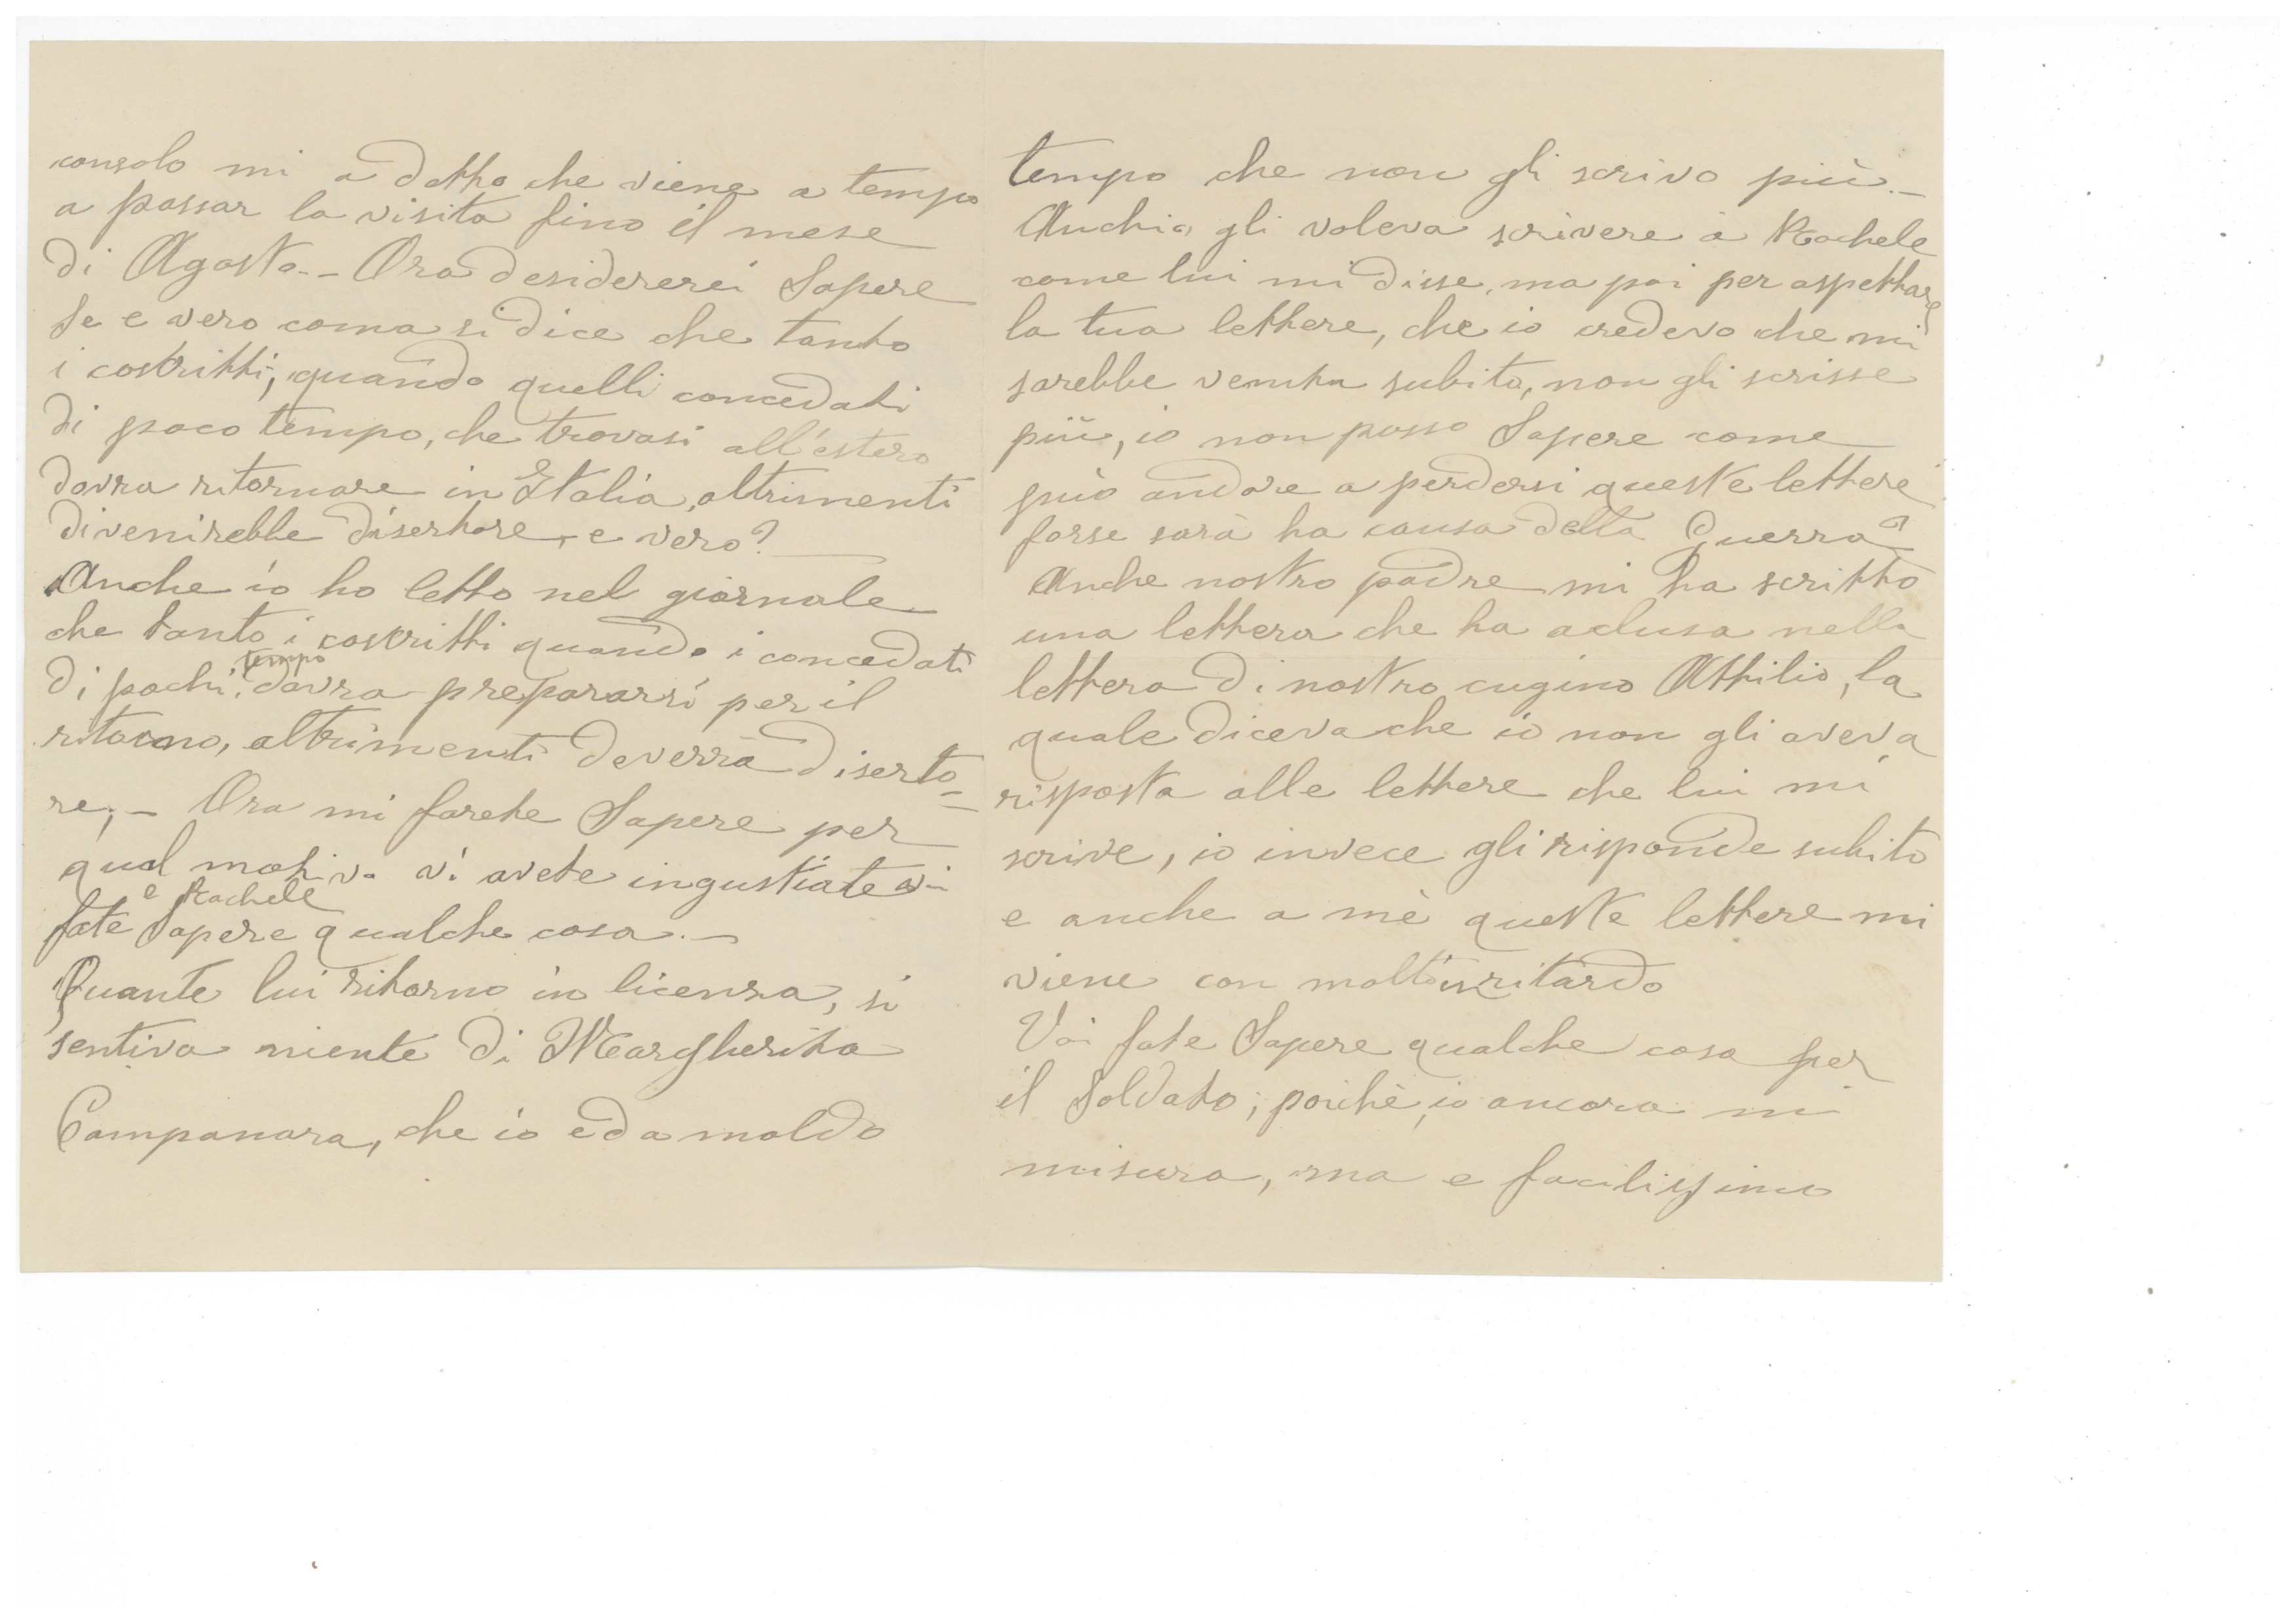 consolo mi a detto che viene a tempo
a passar la visita fino il mese
di Agosto.- Ora desidererei Sapere
Se e vero coma si dice che tanto
i costritti, quando quelli concedati
di poco tempo, che trovasi all'estero
dovra ritornare in Italia, altrimenti
divenirebbe disertore, e vero?
Anche io ho letto nel giornale
che tanto i costritti quando i concedati
di pochi tempo dovra prepararsi per il
ritorno, altrimenti deverrà diserto=
re;- Ora mi farete Sapere per
qual motivo vi avete ingustiate
e Rachele
fate Sapere qualche cosa.-
Quante lui ritorno in licenza, si
sentiva niente di Margherita
Campanara, che io eda moldo
tempo che non gli scrivo più.-
Anchio gli voleva scrivere à Rachele
come lui mi disse, ma poi per aspettare
la tua lettere, che io credevo che mi
sarebbe venuta subito, non gli scrisse
più, io non posso Sapere come
può andare a perdersi queste lettere
forse sarà ha causa della Guerra?
Anche nostro padre mi ha scritto
una lettera che ha aclusa nella
lettera di nostro cugino Attilio, la
quale diceva che io non gli aveva
risposta alle lettere che lui mi
scrive, io invece gli risponde subito
e anche a mè queste lettere mi
viene con molto in ritardo
Voi fate Sapere qualche cosa per
il Soldato; poichè, io ancora mi
misura, ma e facilissimo